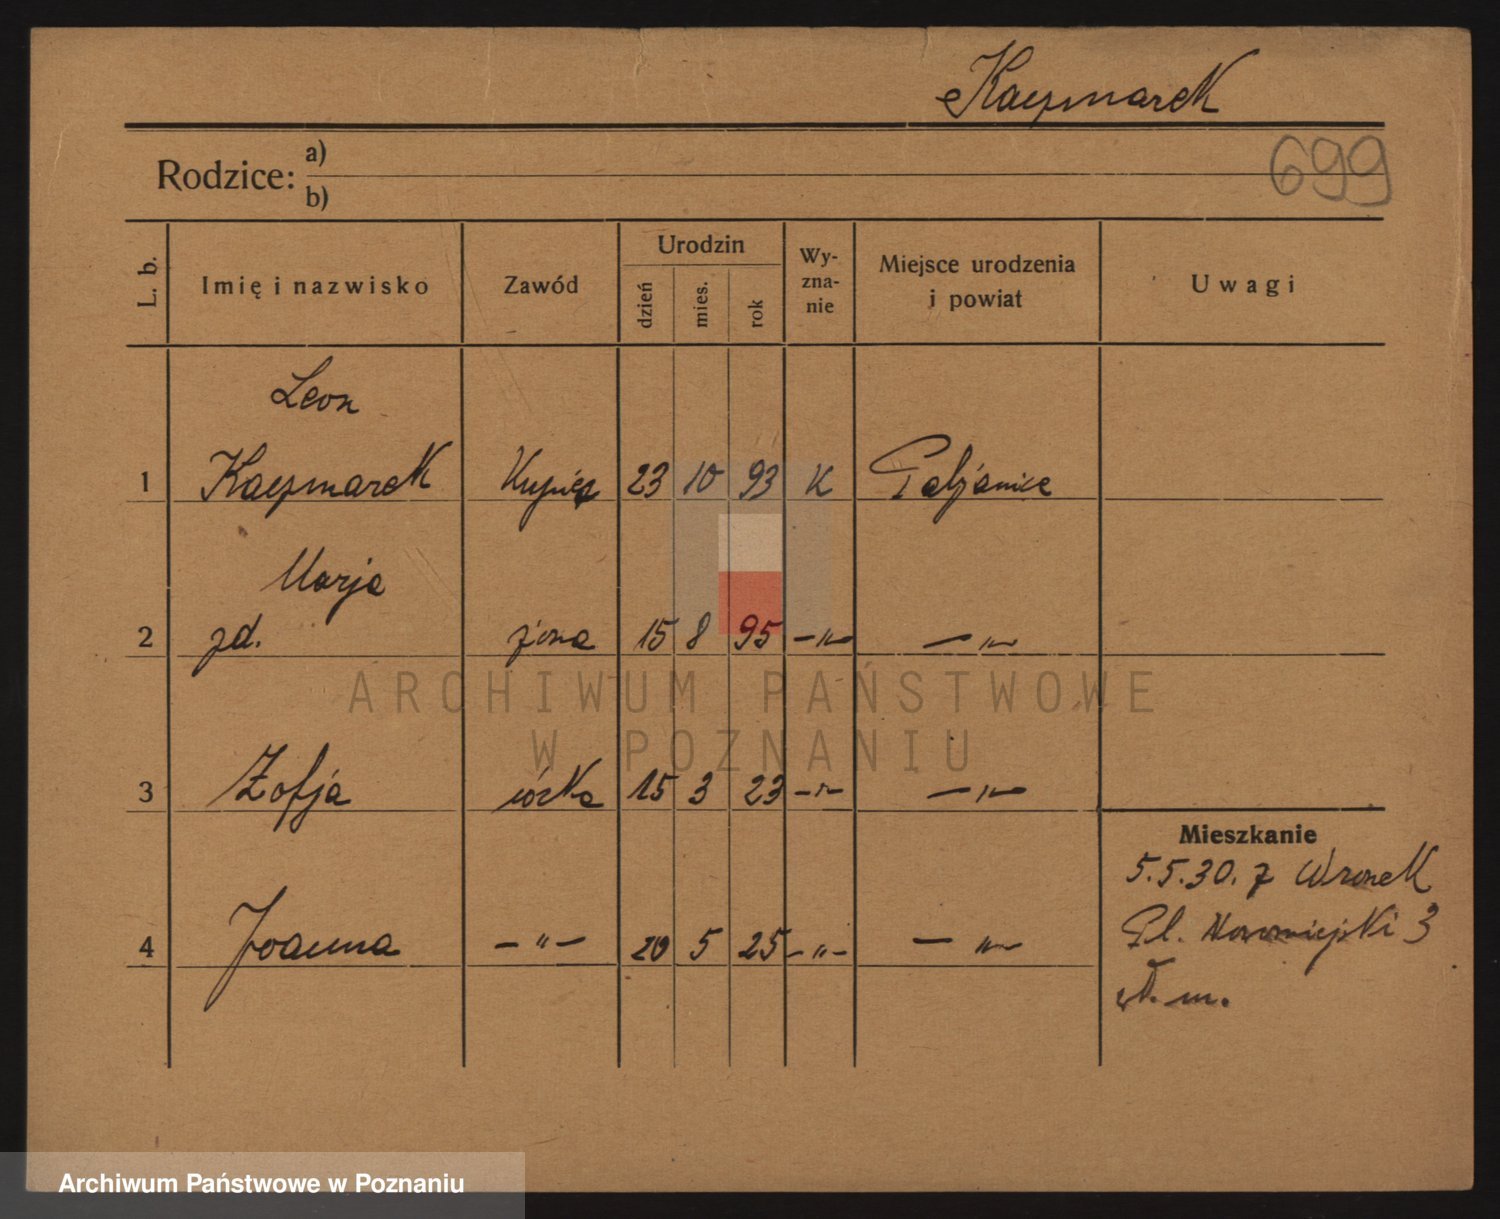 Kaczmarek
699
Rodzice: a)
b)
L. b. Imię i nazwisko Zawód Urodzin dzień mies. rok Wy-zna-nie Miejsce urodzenia i powiat Uwagi
Leon
1 Kaczmarek Kupiec 23 10 93 K Pabjanice
Marja
2 zd. żona 15 8 95 —„— —„—
3 Zofja córka 15 3 23 —„— —„—
Mieszkanie
5.5.30. z Wronek
4 Joanna —„— 20 5 25 —„— —„—
Pl. Nowomiejski 3
m.
ARCHIWUM PAŃSTWOWE
W POZNANIU
Archiwum Państwowe w Poznaniu